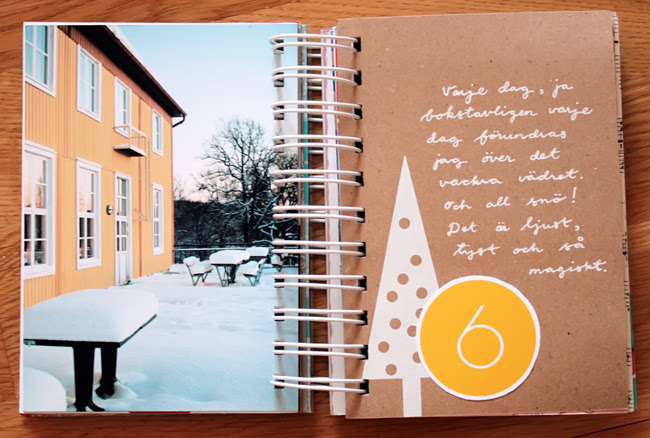 Varje dag, ja
bokstavligen varje
dag förundras
jag över det
vackra vädret.
Och all snö!
Det är ljust,
tyst och så
magiskt.
6